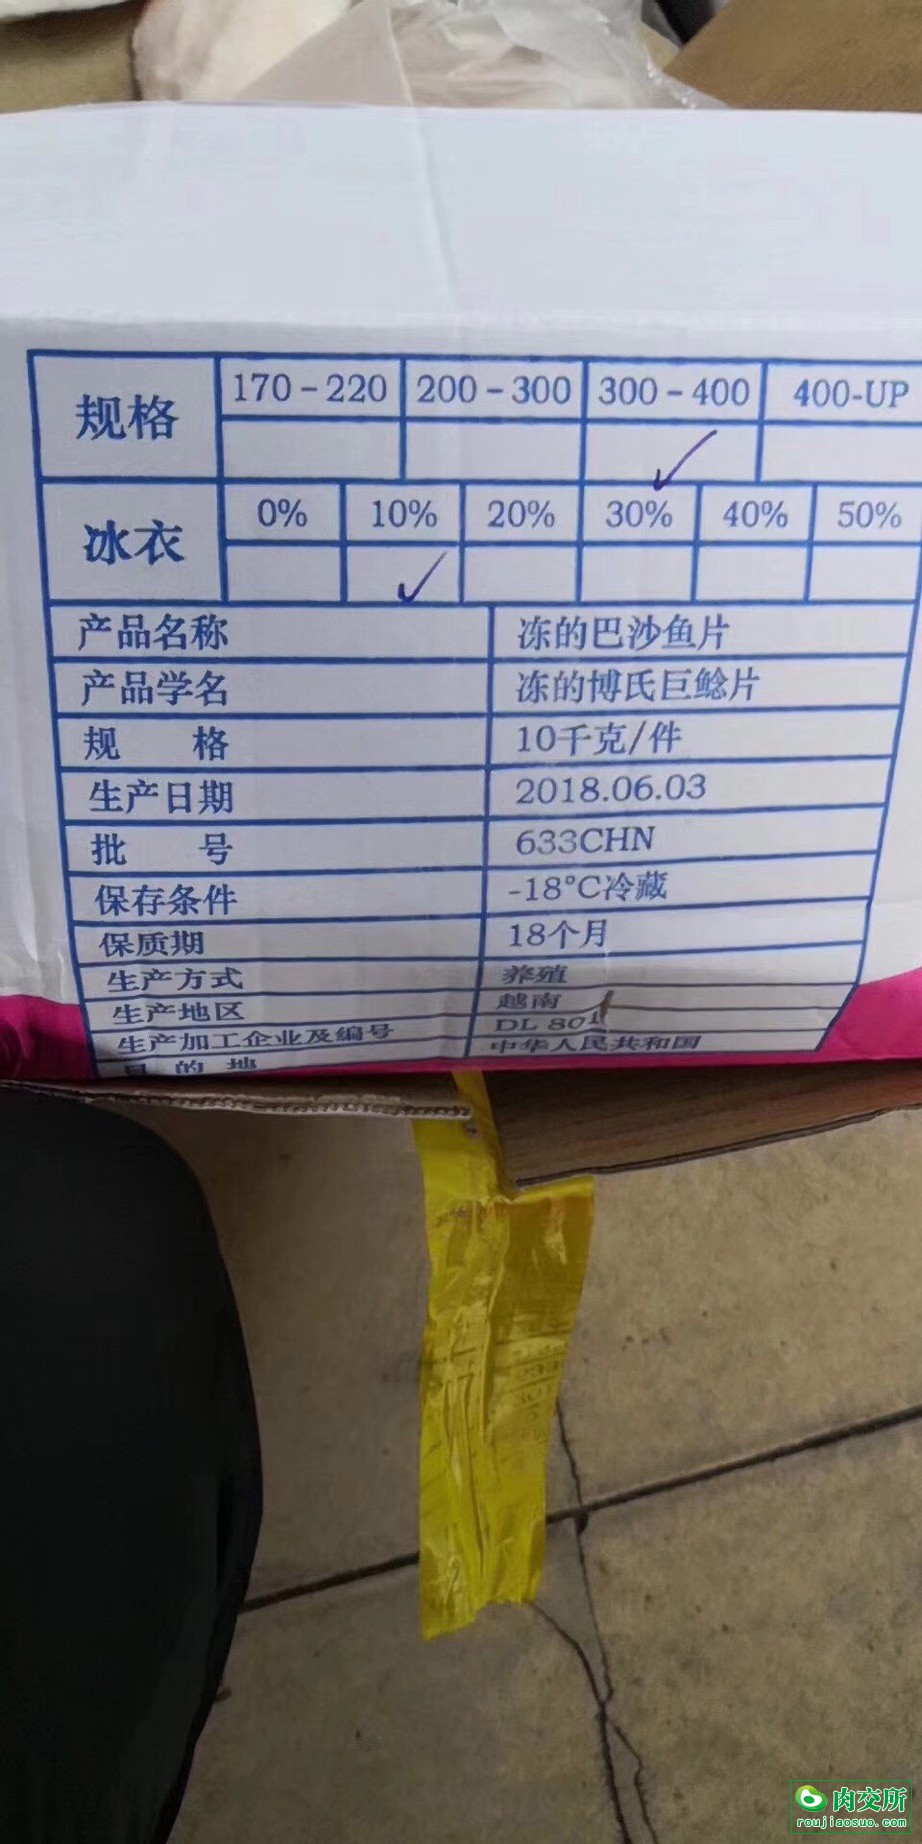 规格 170-220 200-300 300-400 400-UP
冰衣 0% 10% 20% 30% 40% 50%
产品名称 冻的巴沙鱼片
产品学名 冻的博氏巨鲶片
规 格 10千克/件
生产日期 2018.06.03
批 号 633CHN
保存条件 -18°C冷藏
保质期 18个月
生产方式 养殖
生产地区 越南
生产加工企业及编号 DL 801
目的地 中华人民共和国
肉交所
roujiaosuo.com